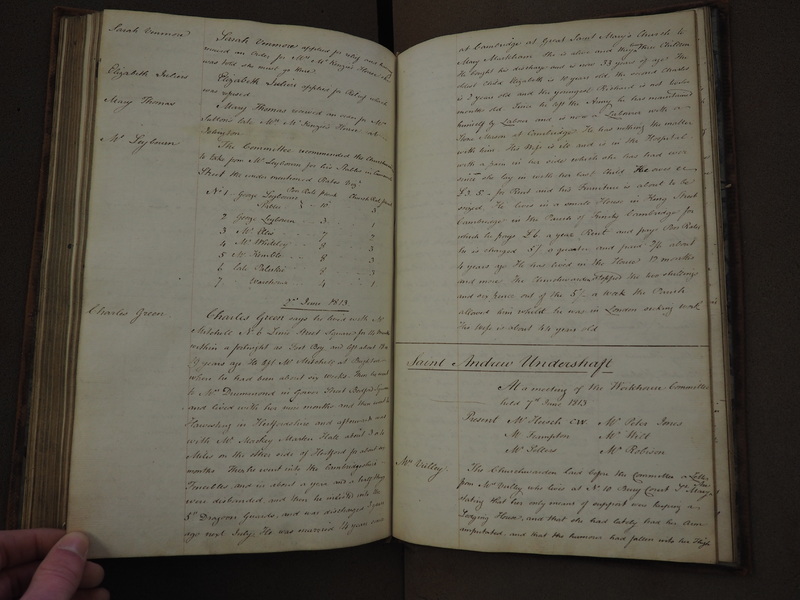 Sarah Simmons
Sarah Simmons applies for relief and having
missed an Order for Mr McKenzie's House she
was told she must go there
Elizabeth Julius
Elizabeth Julius applies for Relief which
was refused
Mary Thomas
Mary Thomas missed an order for
late Mr McKenzie's House at
Islington
Mr Leyburn
The Committee recommended the Churchwardens
to take from Mr Leyburn for his Stables in
Street the under mentioned Rates Viz
Poor Rate Church Rate
No 1 George Leyburn
Stables 10 3
2 George Leyburn 3 1
3 Mr Atlee 7 2
4 Mr Whiteby 3
5 Mr Kemble 8 3
6 late 3
7 Warehouse 4 1
2nd June 1813
Charles Green
Charles Green says he lived with Mr
Mitchell No 6 Street Square for
within a fortnight as Foot Boy, and left about
years ago He left Mr Mitchell at Brighton
where he had been about six weeks then he went
to Mrs Drummond in Gower Street Bedford Square
and lived with her nine months and then went to
Harvesting in Hertfordshire and afterwards
with Mr Mackey Master Hatter about 3 or 4
Miles on the other side of Hertford for about six
months Then he went into the Cambridgeshire
Fencibles and in about a year and a half they
were disbanded and then he inlisted into the
5th Dragoon Guards, and was discharged 7 years
ago next July. He was married 14 years since
at Cambridge at Great Saint Mary's Church to
Mary Markham she is alive and they have three Children
He bought his discharge and is now 33 years of age The
eldest Child Elizabeth is 10 years old, the second Charles
is 3 years old and the youngest Richard is not
months old Since he left the Army he has maintained
himself by Labour and is now a Labourer with a
Lime Mason at Cambridge He has nothing the matter
with him. His Wife is ill and is in the Hospital
with a pain in her side which she has had ever
since she lay in with her last Child He owes
£2.5. for Rent and his Furniture is about to be
seized. He lives in a small House in King Street
Cambridge in the Parish of Trinity Cambridge for
which he pays £6 a year Rent and pays Poor Rates
he is charged 5/. a quarter and paid 3/6 about
4 years ago He has lived in the House 12 months
and more The Churchwarden stopped the two shillings
and six pence out of the 5/. a week the Parish
allowed him whilst he was in London seeking work
His Wife is about 44 years old
Saint Andrew Undershaft
At a meeting of the Workhouse Committee
held 7th June 1813
Present Mr Hirsch CW Mr Peter Jones
Mr Frampton Mr West
Mr Sellens Mr Robison
Mrs Valley
The Churchwarden laid before the Committee a Letter
from Mrs Valley who lives at No 10 Bury Court St Mary Axe
stating that her only means of support was keeping a
Lodging House, and that she had lately had her Arm
amputated, and that the humour had fallen into her Thigh